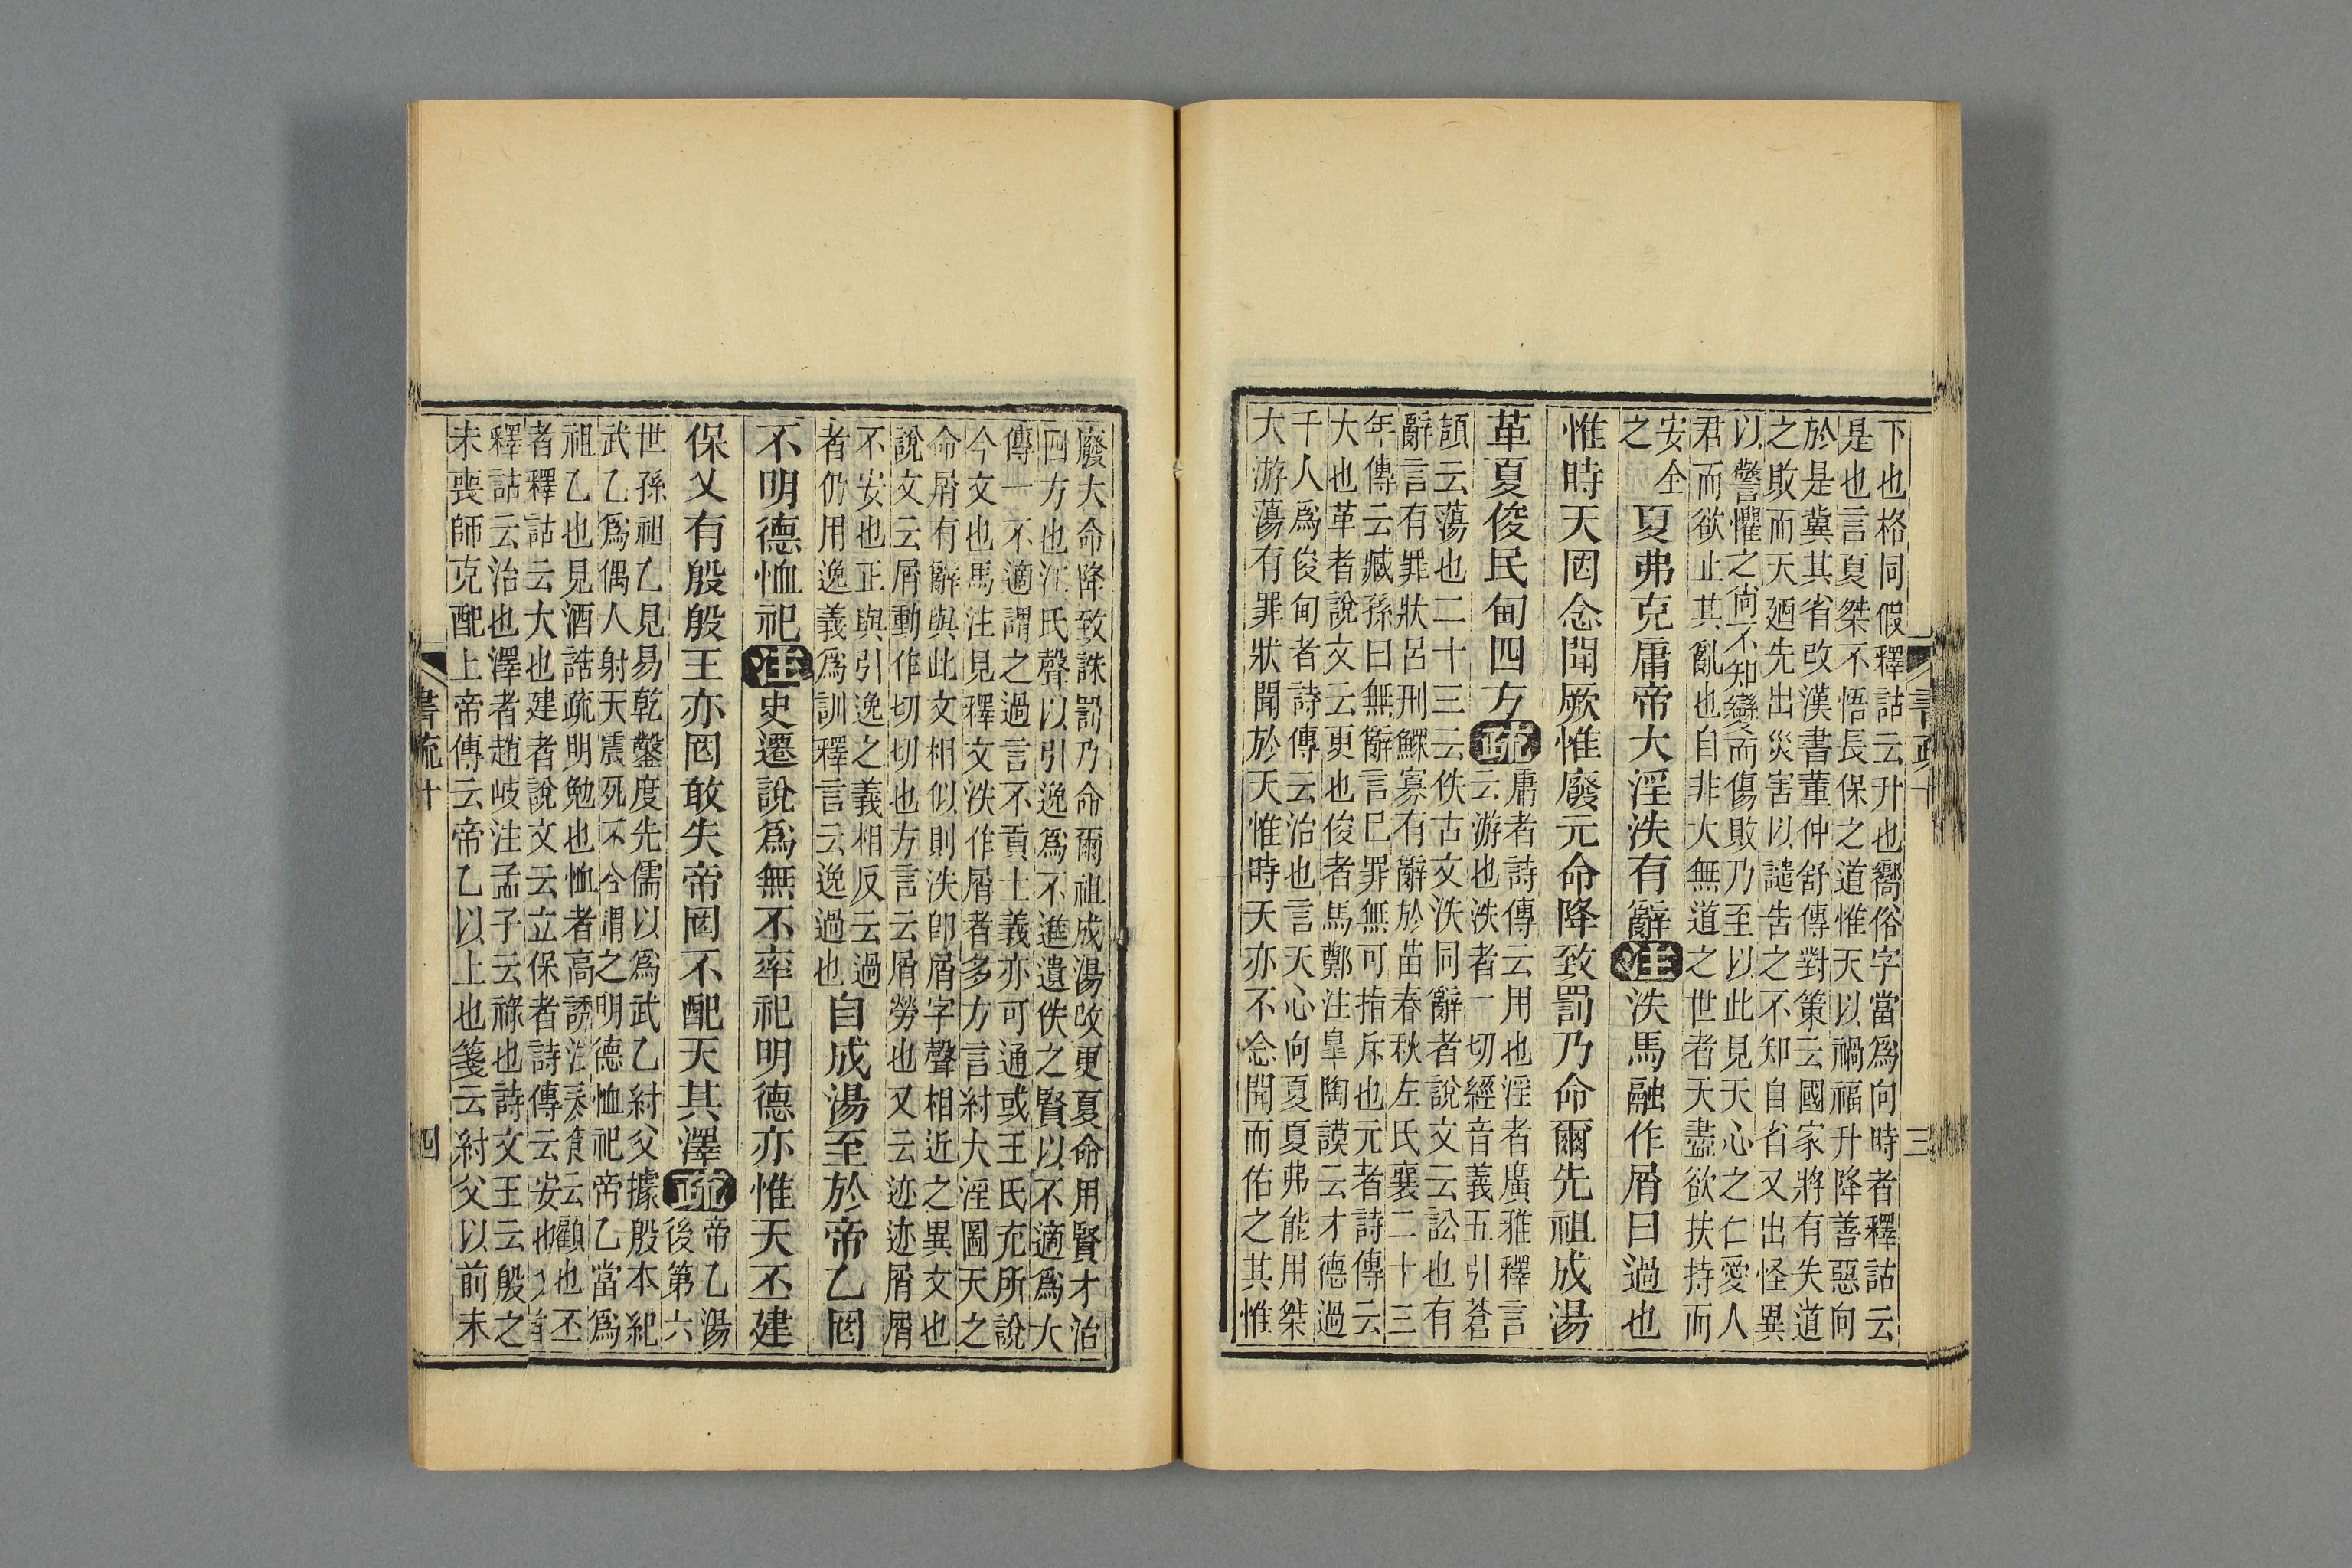 下也格同假釋詁云升也嚮俗字當爲向時者釋詁云
是也言夏桀不悟長保之道惟天以禍福升降善惡向
於是冀其省改漢書董仲舒傳對策云國家將有失道
之敗而天廼先出災害以譴告之不知自省又出怪異
以警懼之尚不知變而傷敗乃至以此見天心之仁愛人
君而欲止其亂也自非大無道之世者天盡欲扶持而
安全
之
夏弗克庸帝大淫泆有辭注泆馬融作屑曰過也
惟時天罔念聞厥惟廢元命降致罰乃命爾先祖成湯
革夏俊民甸四方疏
庸者詩傳云用也淫者廣雅釋言
云游也泆者一切經音義五引蒼
頡云蕩也二十三云佚古文泆同辭者說文云訟也有
辭言有罪狀呂刑鰥寡有辭於苗春秋左氏襄二十三
年傳云臧孫曰無辭言巳罪無可指斥也元者詩傳云
大也革者說文云更也俊者馬鄭注皐陶謨云才德過
千人爲俊甸者詩傳云治也言天心向夏夏弗能用桀
大游蕩有罪狀聞於天惟時天亦不念聞而佑之其惟
書疏十
三
廢大命降致誅罰乃命爾祖成湯改更夏命用賢才治
四方也江氏聲以引逸爲不進遺佚之賢以不適爲大
傳一不適謂之過言不貢士義亦可通或王氏充所說
今文也馬注見釋文泆作屑者多方言紂大淫圖天之
命屑有辭與此文相似則泆卽屑字聲相近之異文也
說文云屑動作切切也方言云屑勞也又云迹迹屑屑
不安也正與引逸之義相反云過
者仍用逸義爲訓釋言云逸過也
自成湯至於帝乙罔
不明德恤祀注史遷說爲無不率祀明德亦惟天丕建
保乂有殷殷王亦罔敢失帝罔不配天其澤疏
帝乙湯
後第六
世孫祖乙見易乾鑿度先儒以爲武乙紂父據殷本紀
武乙爲偶人射天震死不合謂之明德恤祀帝乙當爲
祖乙也見酒誥疏明勉也恤者高誘注云顧也丕
者釋詁云大也建者說文云立保者詩傳云安也
釋詁云治也澤者趙岐注孟子云祿也詩文王云殷之
未喪師克配上帝傳云帝乙以上也箋云紂父以前未
書疏十
四